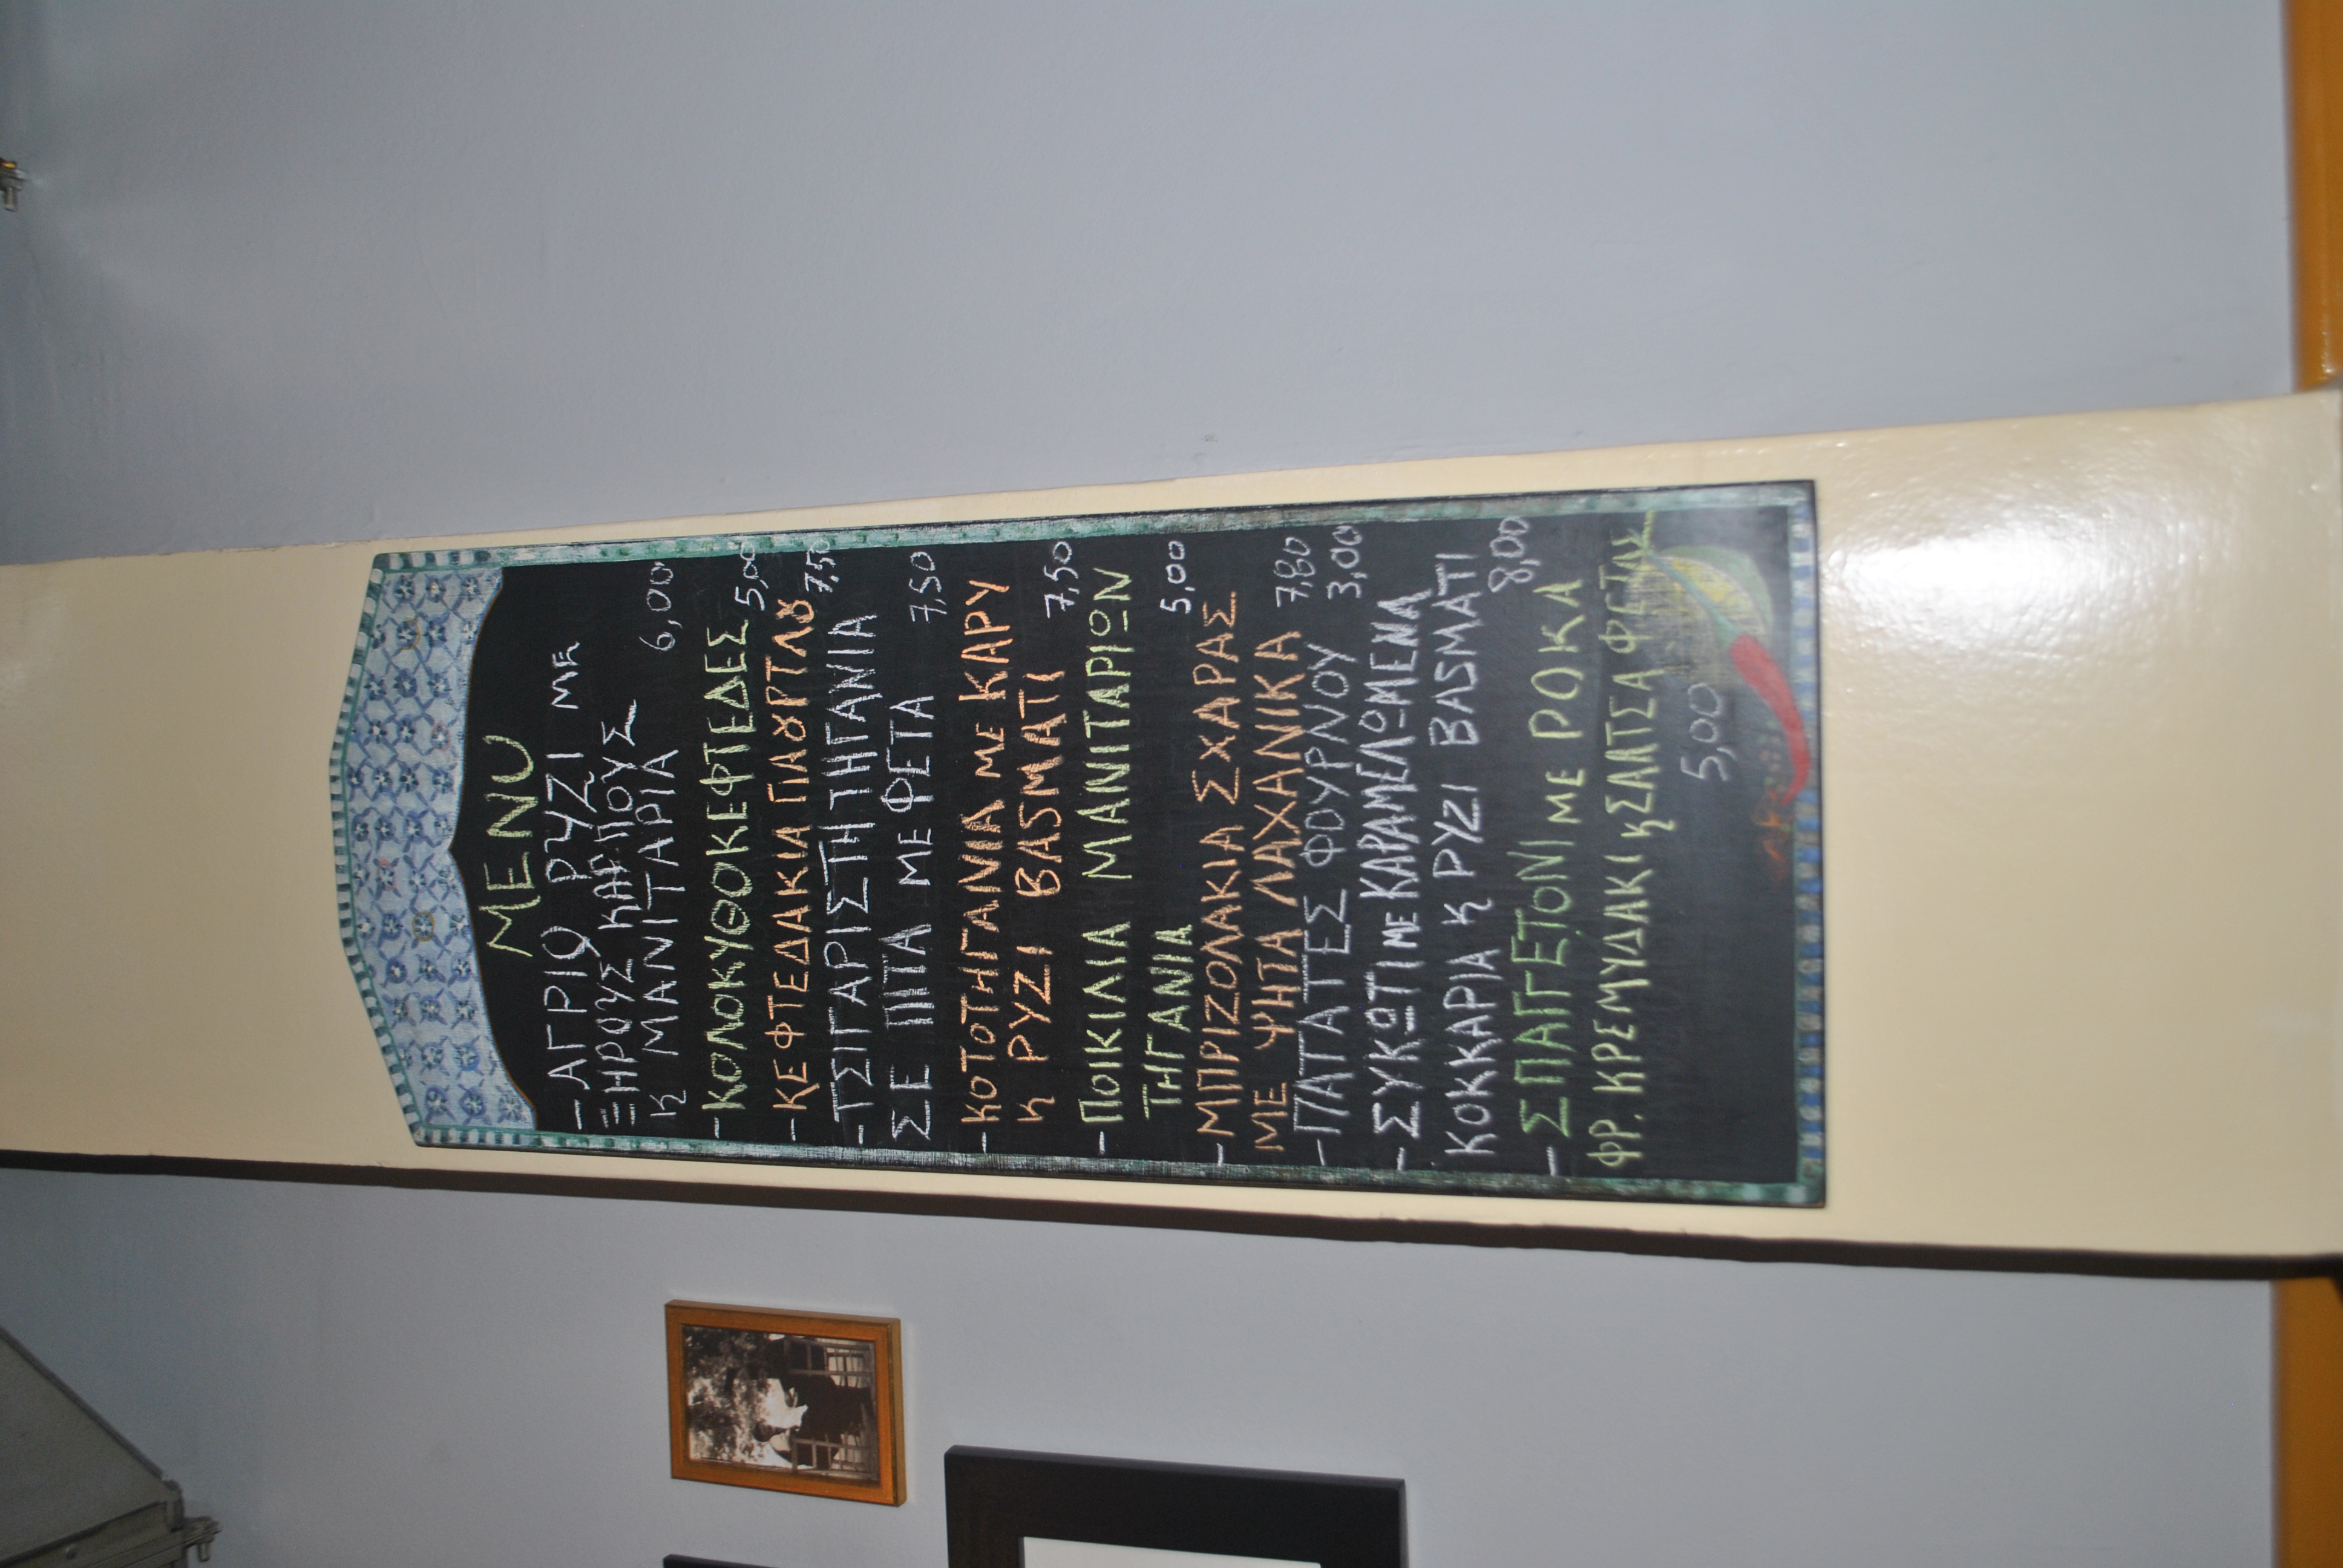 MENU
- ΑΓΡΙΟ ΡΥΖΙ ΜΕ
ΞΗΡΟΥΣ ΚΑΡΠΟΥΣ
κ ΜΑΝΙΤΑΡΙΑ 6,00
- ΚΟΛΟΚΥΘΟΚΕΦΤΕΔΕΣ 5,00
- ΚΕΦΤΕΔΑΚΙΑ ΓΙΑȣΡΤΛȣ 7,50
- ΤΣΙΓΑΡΙΣΤΗ ΤΗΓΑΝΙΑ
ΣΕ ΠΙΤΑ ΜΕ ΦΕΤΑ 7,50
- ΚΟΤΟΤΗΓΑΝΙΑ ΜΕ ΚΑΡΥ
κ ΡΥΖΙ BASMATI 7,50
- ΠΟΙΚΙΛΙΑ ΜΑΝΙΤΑΡΙΩΝ
ΤΗΓΑΝΙΑ 5,00
- ΜΠΡΙΖΟΛΑΚΙΑ ΣΧΑΡΑΣ
ΜΕ ΨΗΤΑ ΛΑΧΑΝΙΚΑ 7,80
- ΠΑΤΑΤΕΣ ΦΟΥΡΝΟΥ 3,00
- ΣΥΚΩΤΙ ΜΕ ΚΑΡΑΜΕΛΩΜΕΝΑ
ΚΟΚΚΑΡΙΑ κ ΡΥΖΙ BASMATI 8,00
- ΣΠΑΓΓΕΤΟΝΙ ΜΕ ΡΟΚΑ
ΦΡ. ΚΡΕΜΥΔΑΚΙ κ ΣΑΛΤΣΑ ΦΕΤΑΣ
5,00